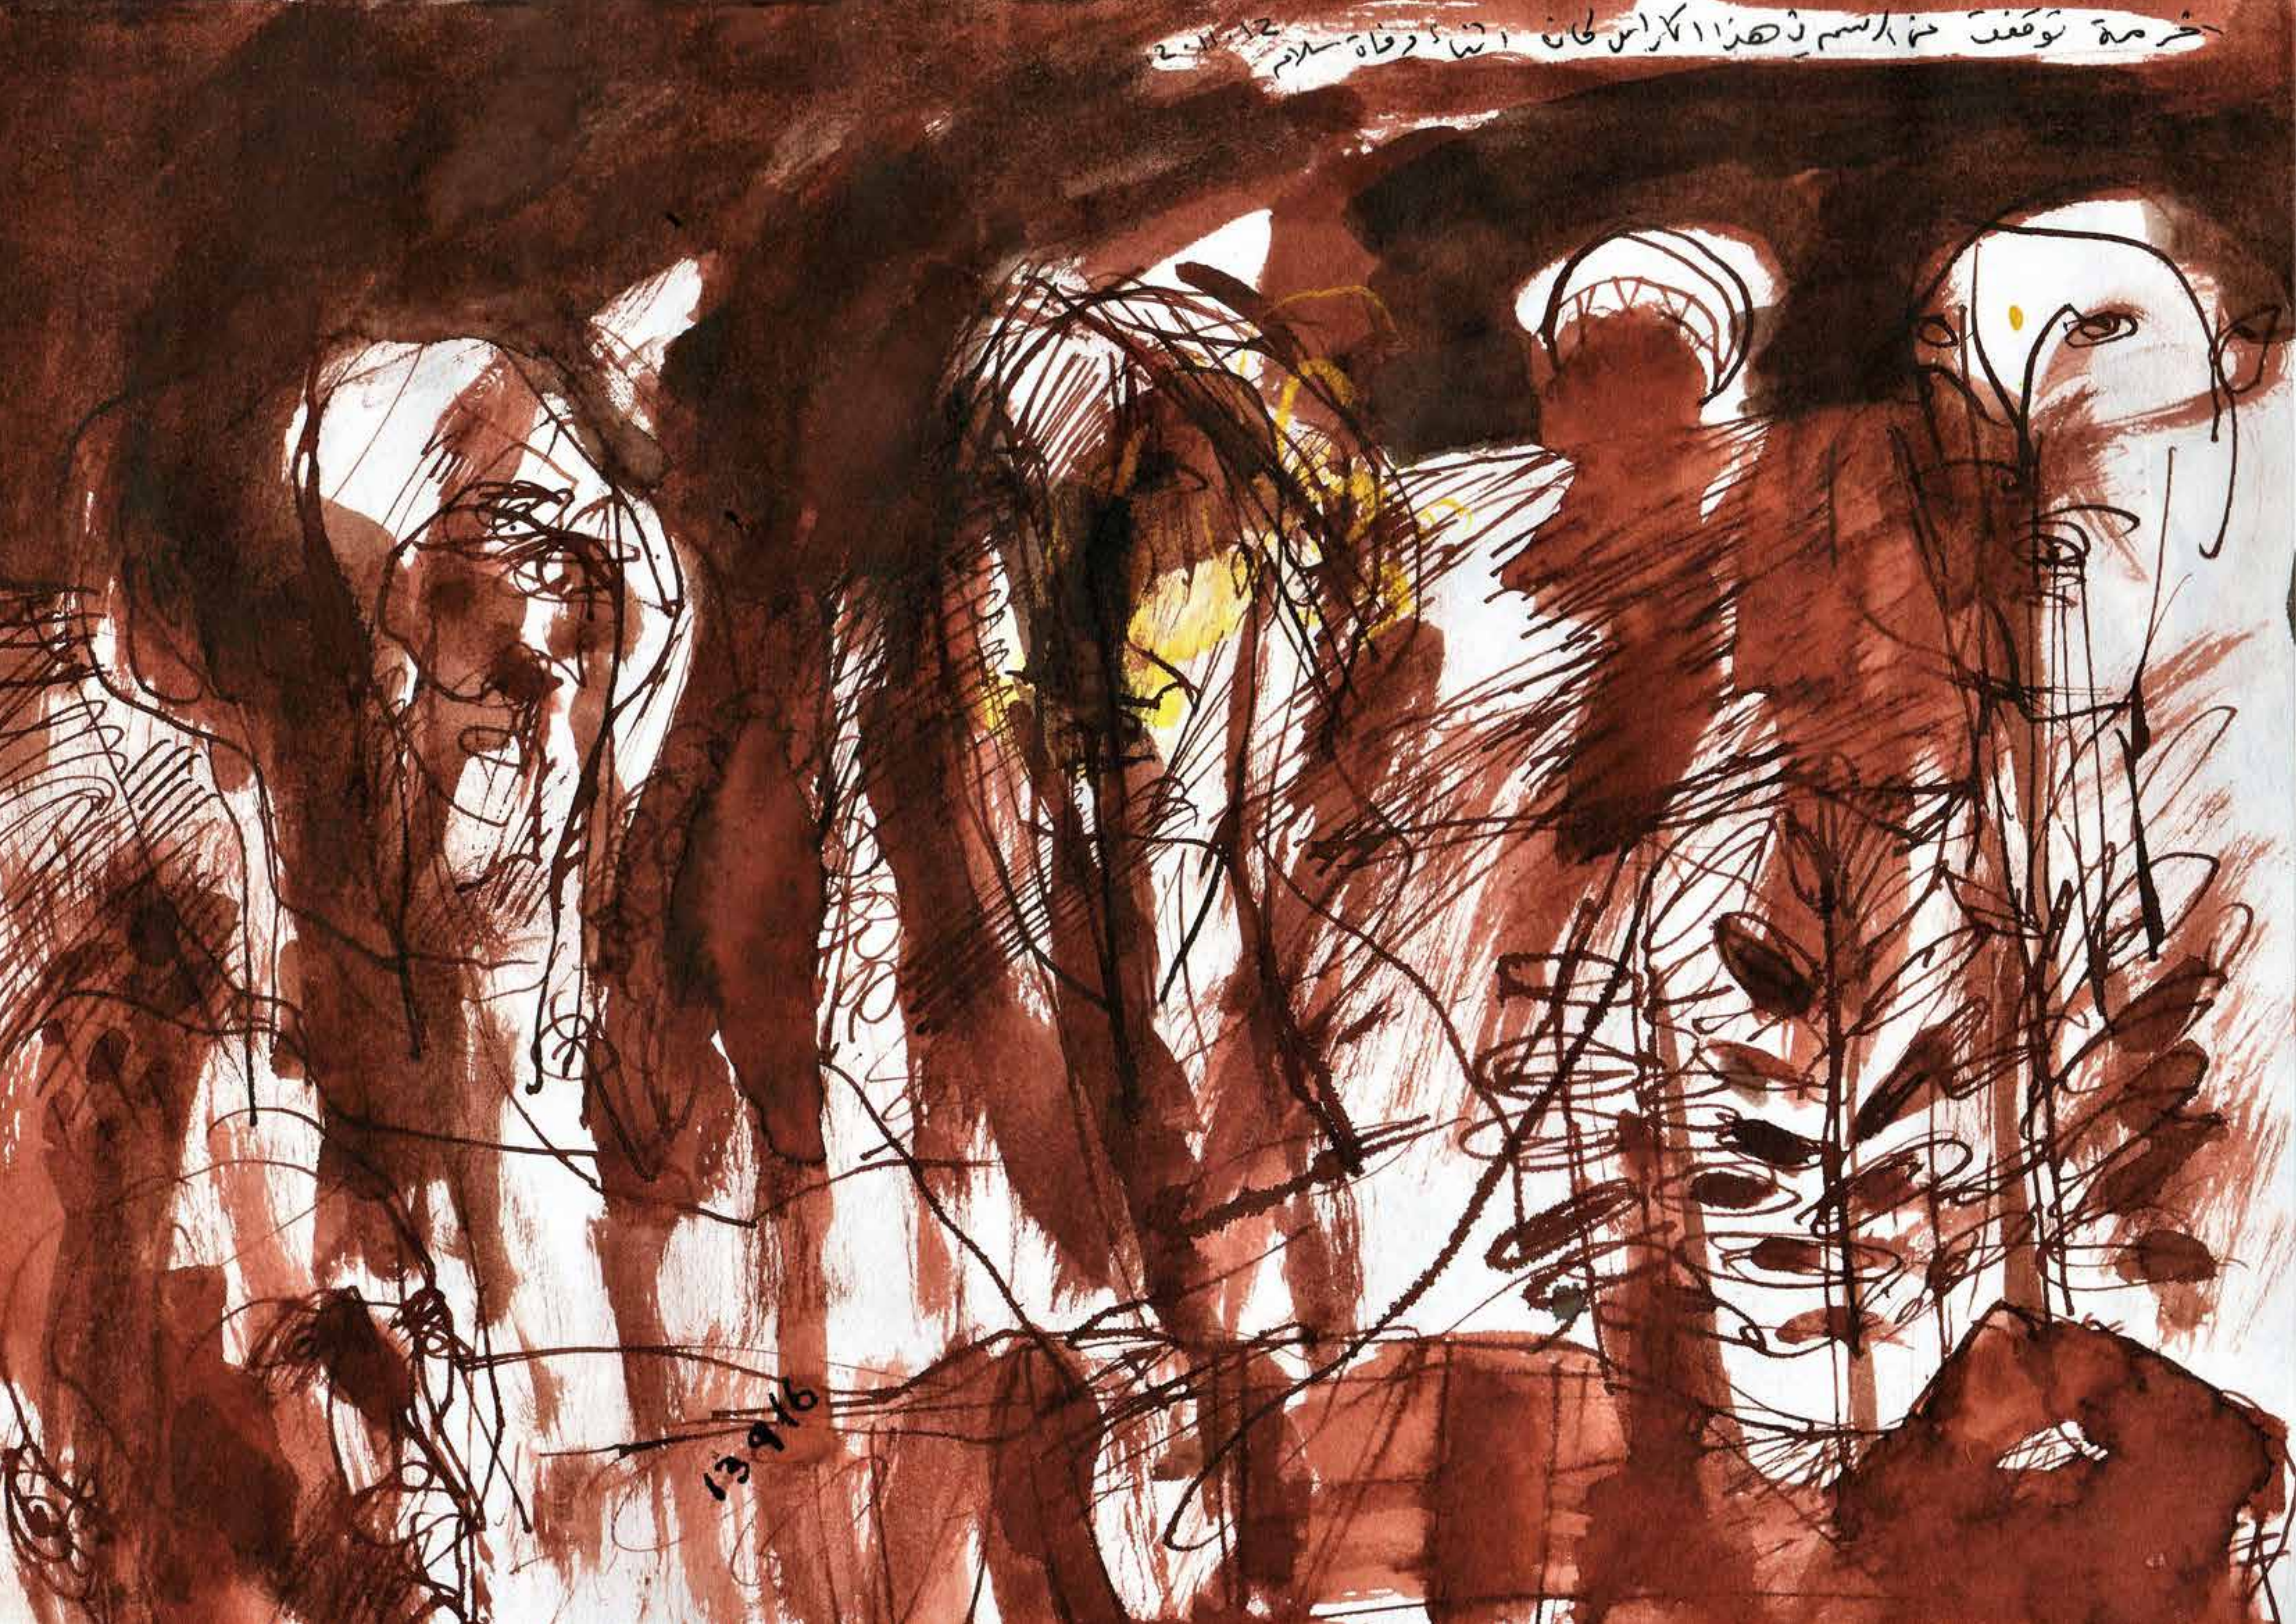 اخر مرة توقفت عن الرسم في هذا الكراس كان اثناء وفاة سلام 2.11.12
13.9.16